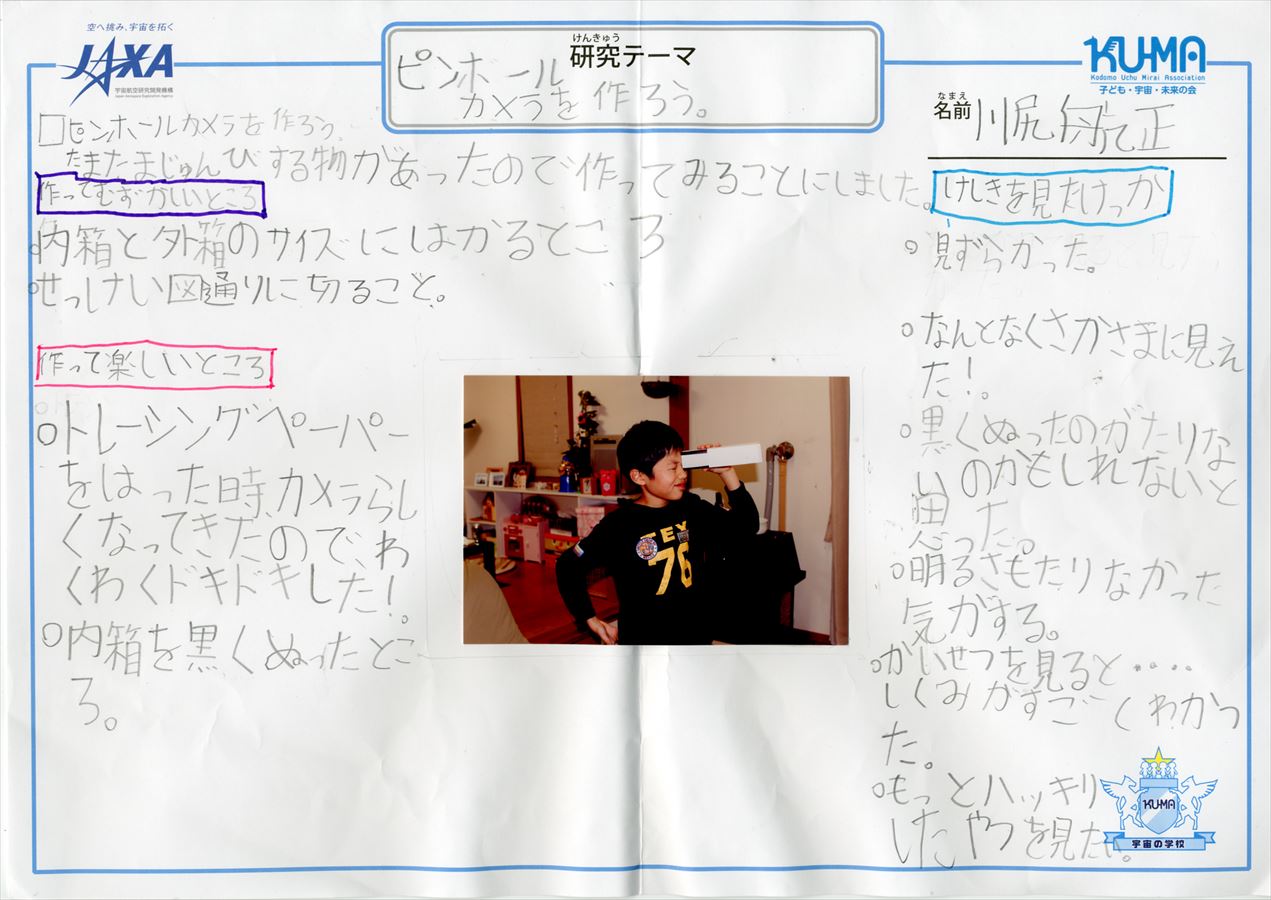 空へ挑み、宇宙を拓く
JAXA
宇宙航空研究開発機構
Japan Aerospace Exploration Agency
けんきゅう
研究テーマ
ピンホール
カメラを作ろう。
KU-MA
Kodomo Uchu Mirai Association
子ども・宇宙・未来の会
なまえ
名前 川尻 正
□ピンホールカメラを作ろう。
たまたまじゅんびする物があったので作ってみることにしました。
作ってむずかしいところ
○内箱と外箱のサイズにはかるところ
○せっけい図通りに切ること。
作って楽しいところ
○トレーシングペーパー
をはった時、カメラらし
くなってきたので、わ
くわくドキドキした!。
○内箱を黒くぬったとこ
ろ。
TEX
76
けしきを見たけっか
○見ずらかった。
○なんとなくさかさまに見え
た!。
○黒くぬったのがたりな
いのかもしれないと
思った。
○明るさもたりなかった
気がする。
○かいせつを見ると・・・・
しくみがすごくわかっ
た。
○もっとハッキリ
したやつを見たい。
KU-MA
宇宙の学校